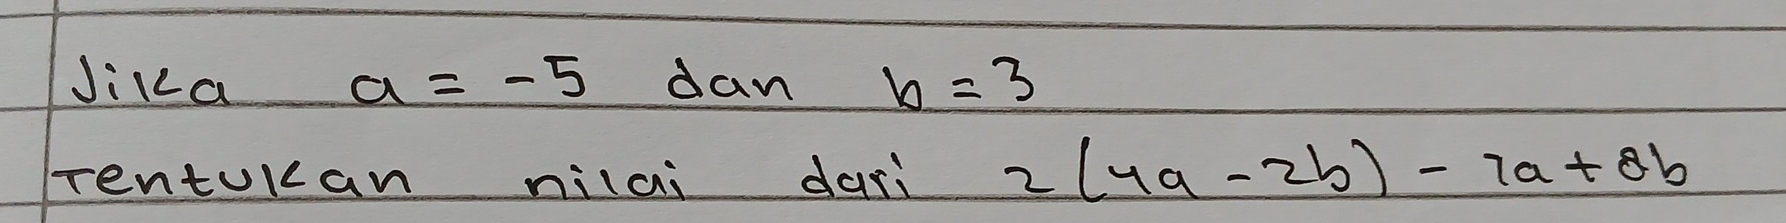 Jika a = -5 dan b = 3
Tentukan nilai dari 2 (4a - 2b) - 7a + 8b